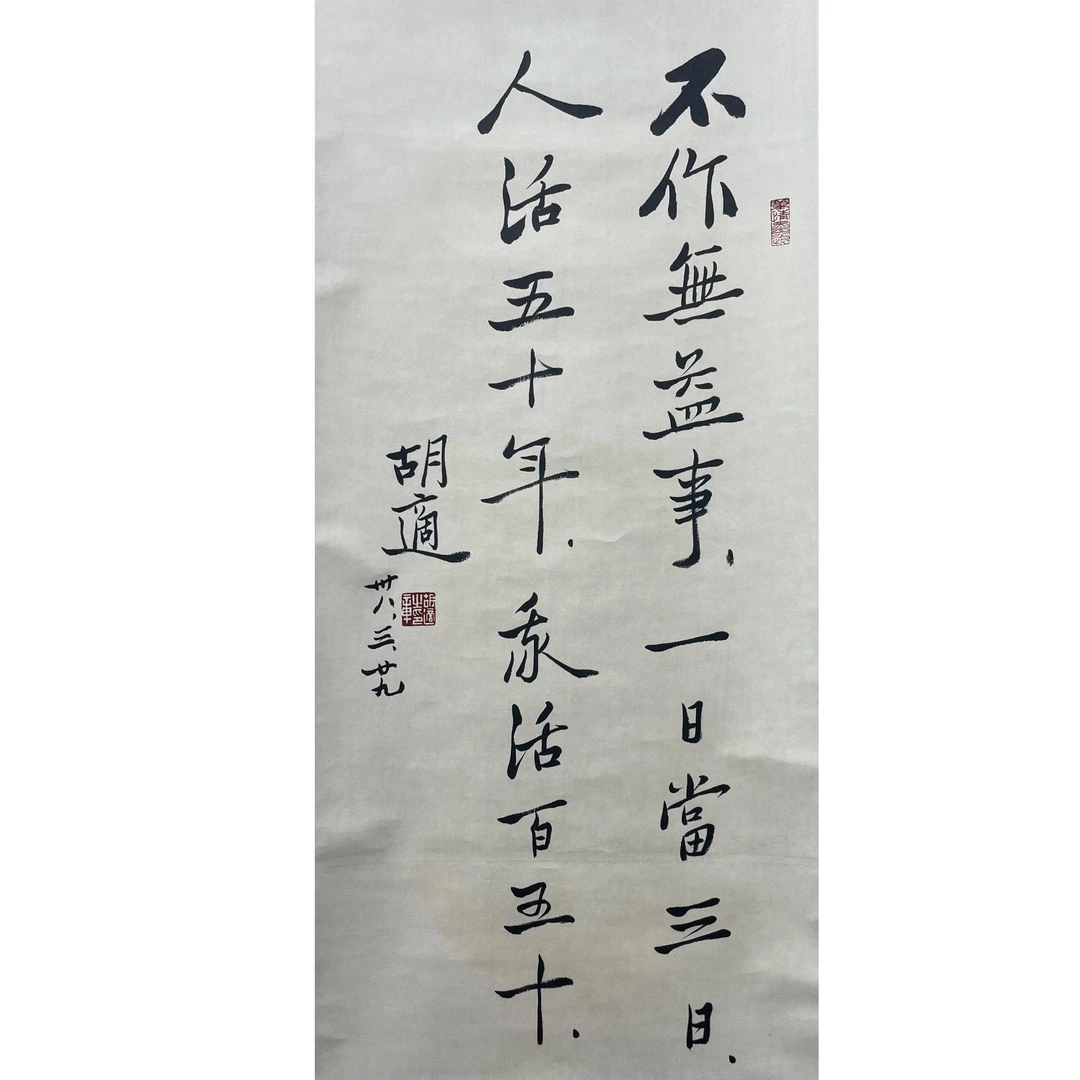 不作無益事、一日當三日、
人活五十年、我活百五十、
胡適
卅八、三、廿九
胡適之印